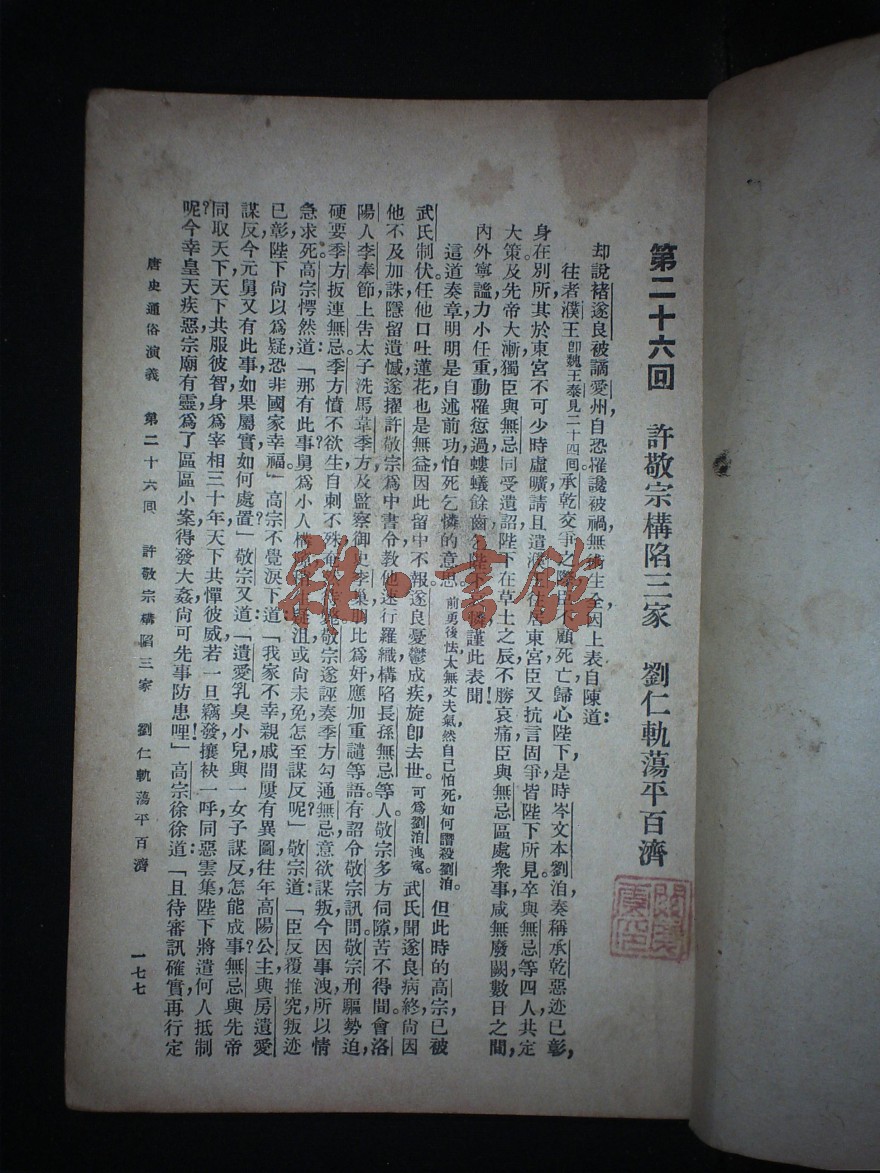 第二十六回　許敬宗構陷三家　劉仁軌蕩平百濟
却說褚遂良被謫愛州，自恐罹讒被禍，無術生全，因上表自陳道：
往者濮王卽魏王泰見二十四回承乾交爭之際，臣不顧死亡，歸心陛下，是時岑文本劉洎奏稱承乾惡迹已彰，
身在別所，其於東宮，不可少時虛曠，請且遣濮王往居東宮，臣又抗言固爭，皆陛下所見。卒與無忌等四人，共定
大策。及先帝大漸，獨臣與無忌同受遺詔，陛下在草土之辰，不勝哀痛，臣與無忌區處衆事，咸無廢闕，數日之間，
內外寧謐，力小任重，動罹愆過，螻蟻餘齒，陛下憐，謹此表聞！
這道奏章，明明是自述前功，怕死乞憐的意思。前勇後怯太無丈夫氣然自己怕死如何譖殺劉洎。但此時的高宗，已被
武氏制伏，任他口吐蓮花，也是無益，因此留中不報。遂良憂鬱成疾，旋卽去世。可爲劉洎洩寃。武氏聞遂良病終，尙因
他不及加誅，隱留遺憾，遂擢許敬宗爲中書令，教他速行羅織，構陷長孫無忌等人。敬宗多方伺隙，苦不得間。會洛
陽人李奉節，上告太子洗馬韋季方，及監察御史李巢，朋比爲奸，應加重譴等語。有詔令敬宗訊問。敬宗刑驅勢迫，
硬要季方扳連無忌。季方憤不欲生，自刺不殊，奄敬宗遂誣奏季方勾通無忌，意欲謀叛，今因事洩，所以情
急求死。高宗愕然道：「那有此事？舅爲小人構疑沮或尙未免，怎至謀反呢？」敬宗道：「臣反覆推究，叛迹
已彰，陛下尙以爲疑，恐非國家幸福。」高宗不覺淚下道：「我家不幸，親戚間屢有異圖，往年高陽公主與房遺愛
謀反，今元舅又有此事，如果屬實，如何處置？」敬宗又道：「遺愛乳臭小兒，與一女子謀反，怎能成事？無忌與先帝
同取天下，天下共服彼智，身爲宰相三十年，天下共憚彼威，若一旦竊發，攘袂一呼，同惡雲集，陛下將遣何人抵制
呢？今幸皇天疾惡，宗廟有靈，爲了區區小案，得發大姦，尙可先事防患哩！」高宗徐徐道：「且待審訊確實，再行定
唐史通俗演義　第二十六回　許敬宗構陷三家　劉仁軌蕩平百濟　一七七
雜·書館